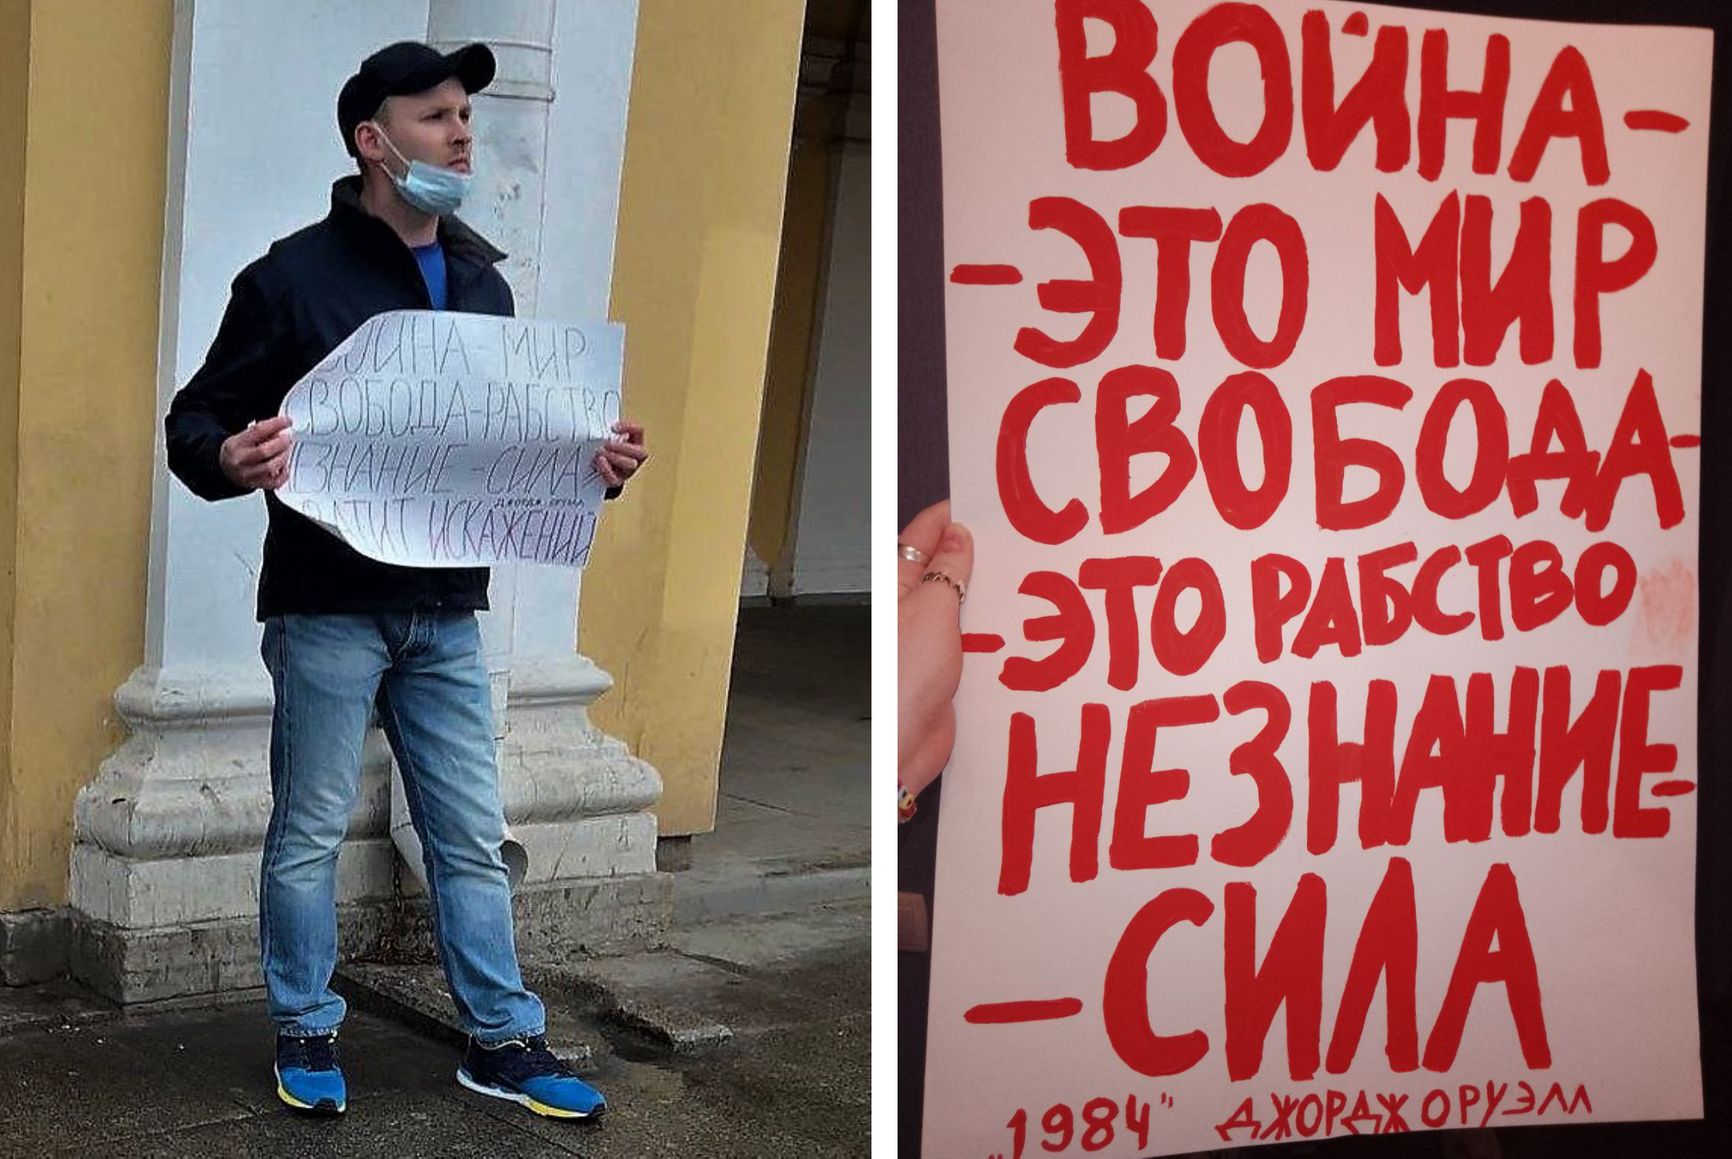 ВОЙНА МИР
СВОБОДА-РАБСТВО
НЕЗНАНИЕ-СИЛА
ДЖОРДЖ ОРУЭЛЛ
ИСКАЖЕНИЙ
ВОЙНА-
-ЭТО МИР
СВОБОДА-
-ЭТО РАБСТВО
НЕЗНАНИЕ-
-СИЛА
„1984" ДЖОРДЖ ОРУЭЛЛ